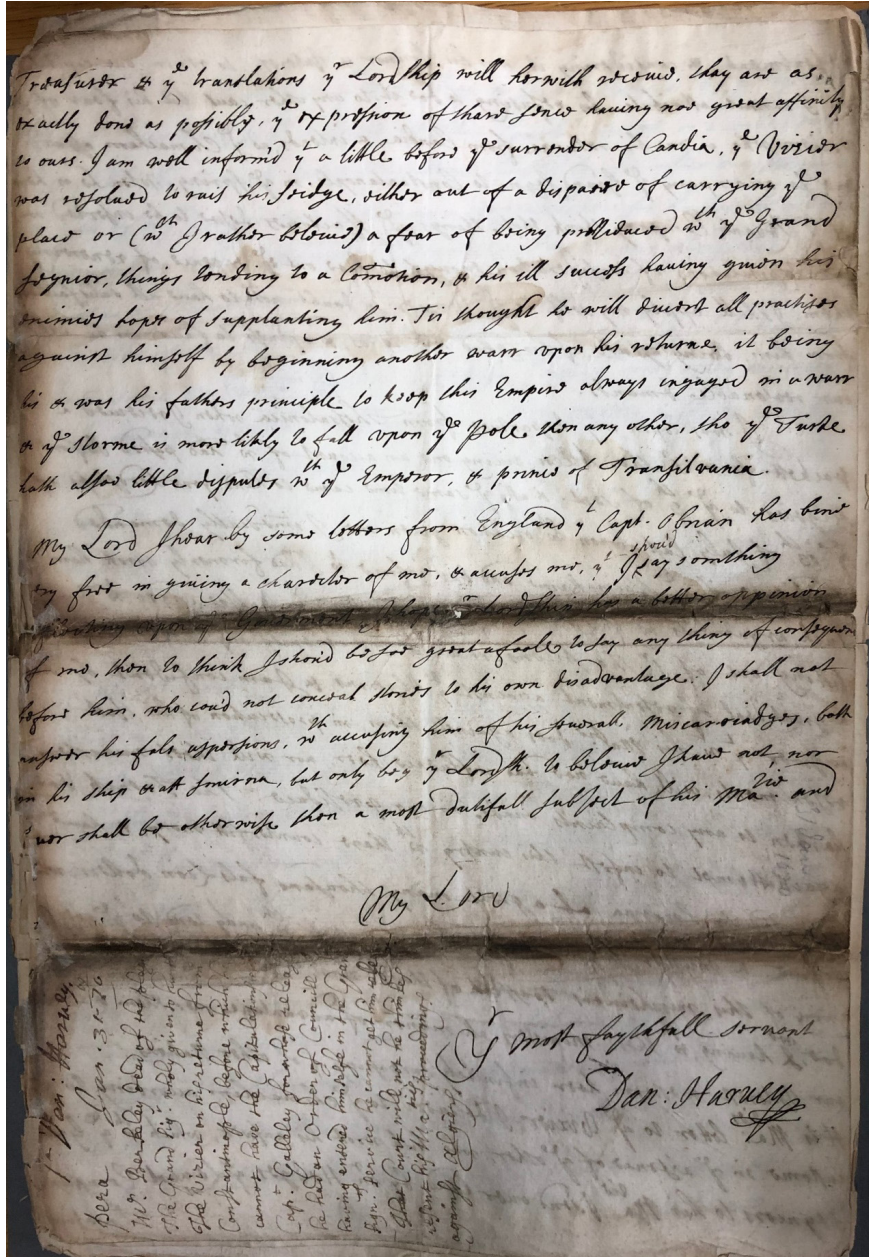 Treasurer & yᵉ translations yʳ Lordship will herwith receive, they are as
exactly done as possible, yᵉ expression of thare sence having noe great affinity
to ours. I am well inform'd yᵗ a little before yᵉ surrender of Candia, yᵉ Vizier
was resolued to rais his seidge, either out of a dispaire of carrying yᵉ
place or (wᶜʰ I rather beleive) a fear of being prejudiced wᵗʰ yᵉ Grand
Segnior, things tending to a Comotion, & his ill success having given his
enimies hopes of supplanting him. Tis thought he will divert all practises
against himself by beginning another warr vpon his returne, it being
his & was his fathers principle to keep this Empire always ingaged in a warr
& yᵉ storme is more likly to fall vpon yᵉ Pole then any other, tho yᵉ Turke
hath alsoe little disputes wᵗʰ yᵉ Emperor, & prince of Transilvania.
My Lord I hear by some letters from England yᵗ Capt. Obrian has bine
very free in giving a charecter of me, & accuses me, yᵗ I shou'd say something
reflecting vpon yᵉ Government I hope yʳ Lordship has a better oppinion
of me, then to think I shou'd be soe great a foole to say any thing of consequence
before him, who cou'd not conceal stories to his own disadvantage. I shall not
answer his fals aspersions, wᵗʰ accusing him of his severall Miscariadges, both
in his ship & att Smirna, but only beg yʳ Lordsh. to beleive I have not, nor
ever shall be otherwise then a most dutifull subject of his Maᵗⁱᵉ and
My Lord
Yʳ most faythfull servant
Dan: Harvey
Sʳ Dan: Harvey.
Pera Jan. 31. 70
Mʳ Berkeley dead of the
The Grand Sigʳ. wholy given to
The Vizier on his returne from
Constantinople, before which
cannot have the Capitulations
Capᵗ. Galleley
he had an Order of Councill
having entered himself in the Gran
Signʳˢ. service he cannot get him
That Court will not be
resent his Maᵗⁱᵉˢ proceedings
against Algiers